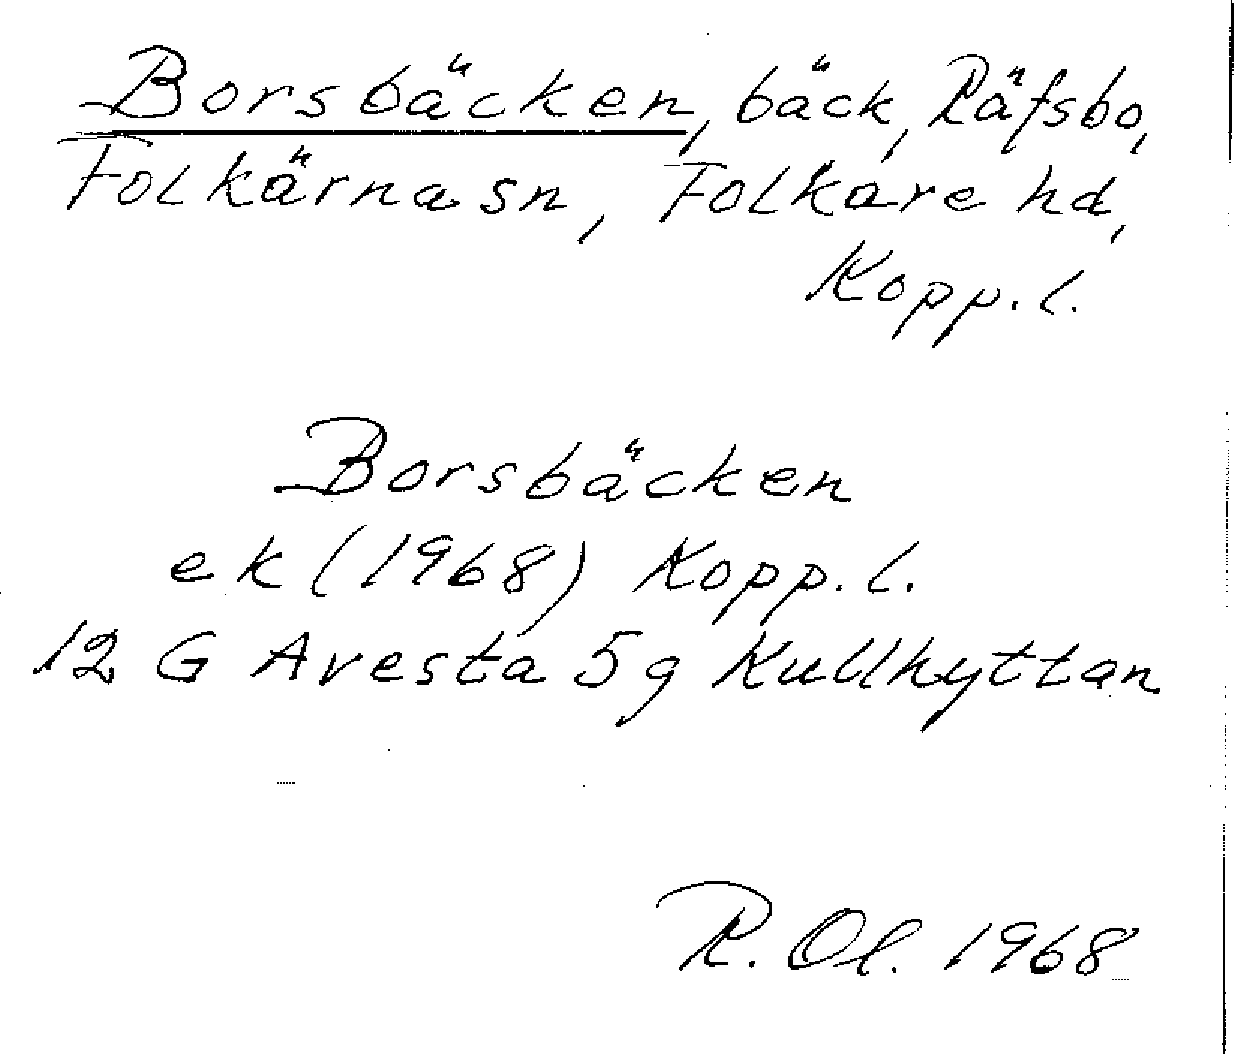 Borsbäcken, bäck, Räfsbo,
Folkärna sn, Folkare hd,
Kopp. l.
Borsbäcken
ek (1968) Kopp. l.
12 G Avesta 5g Kullhyttan
R. Ol. 1968